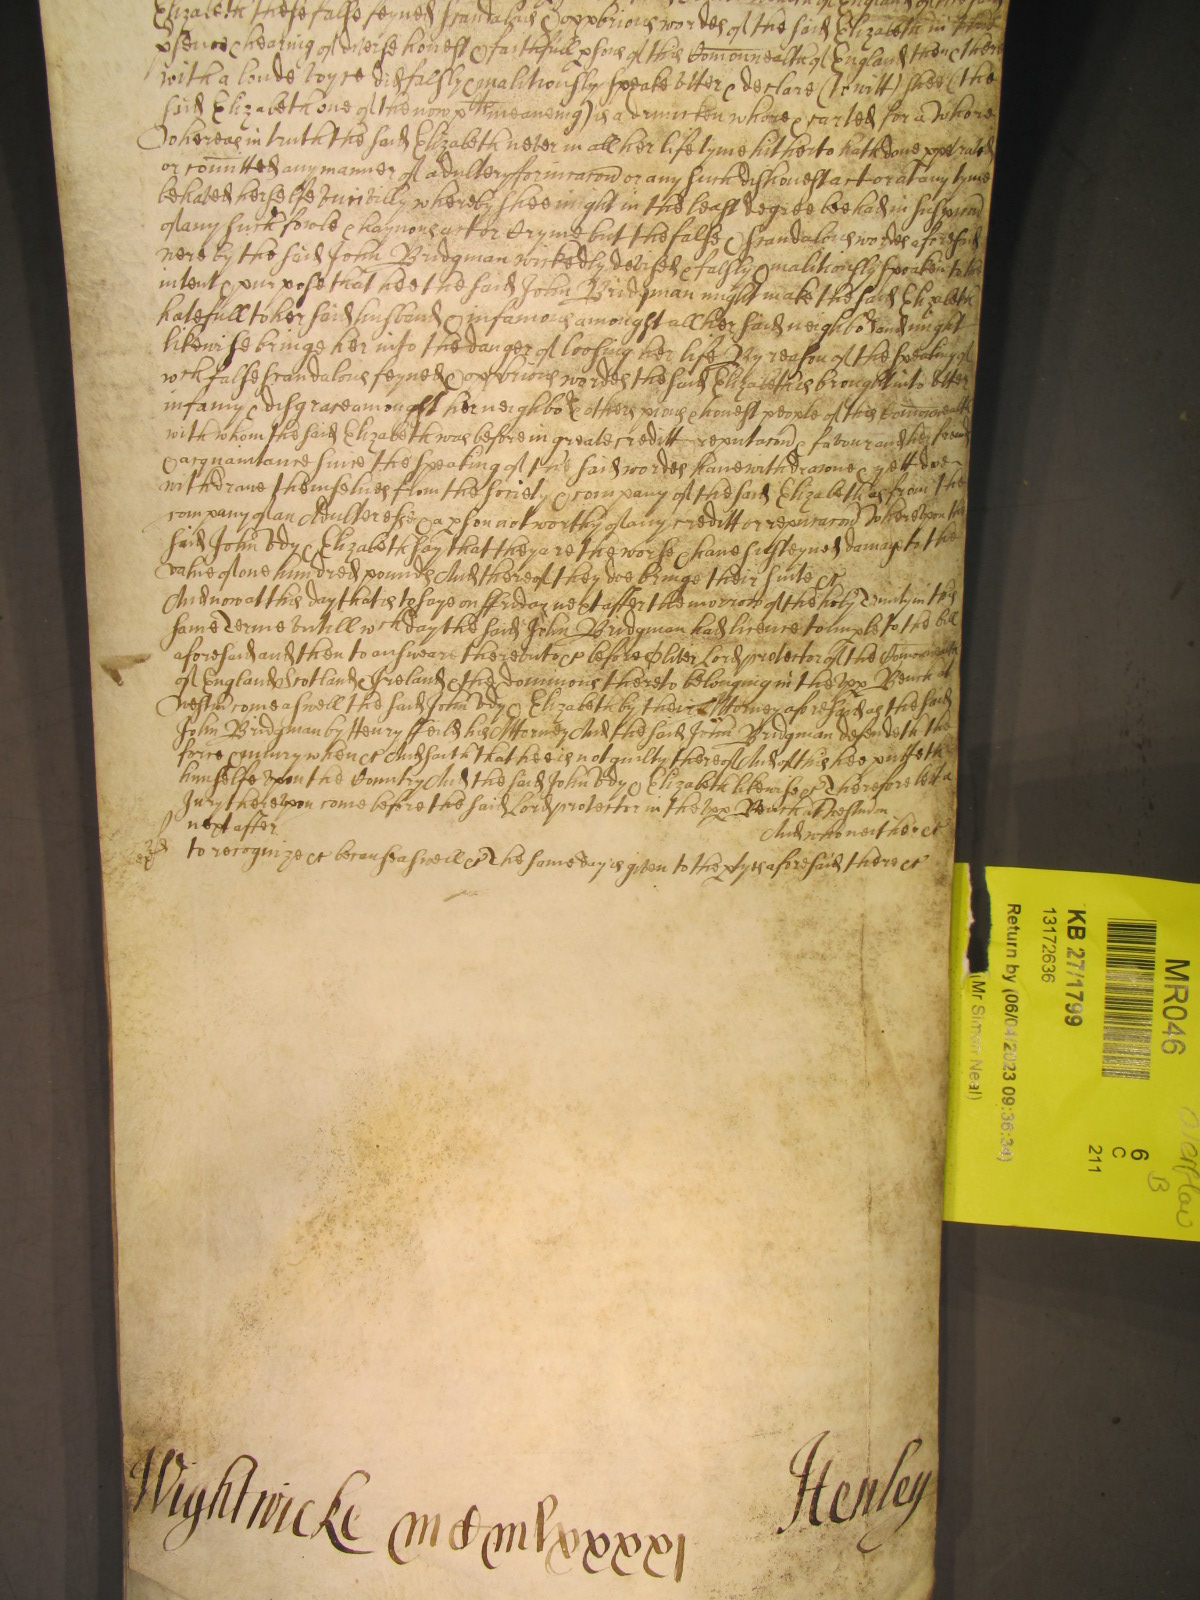 Elizabeth these false feyned scandalous & opprobrious wordes of the said Elizabeth in the
psence & hearing of diverse honest & faithfull psons of this Comonwealth of England then & there
with a loude voyce did falsly & malitiously speake utter & declare (to witt) shee (the
said Elizabeth one of the now plts meaneing) is a druncken whore & carted for a whore
Whereas in truth the said Elizabeth never in all her life tyme hitherto hath done ppetrated
or comitted any manner of adultery fornicacon or any such dishonest act or at any tyme
behaved herselfe uncivilly whereby shee might in the least degree bee had in suspicon
of any such fowle & haynous act or cryme but the false & scandalous wordes aforesaid
were by the said John Bridgman wickedly devised & falsly & malitiously spoaken to the
intent & purpose that hee the said John Bridgman might make the said Elizabeth
hatefull to her said husband & infamous amongst all her said neighbors and might
likewise bringe her into the danger of loosing her life By reason of the speaking of
wch false scandalous feyned & opprobrious wordes the said Elizabeth is brought into utter
infamy & disgrace amongst her neighbors & others pious & honest people of this Comonwealth
with whom the said Elizabeth was before in greate creditt reputacon & favour and her frends
& acquaintance since the speaking of the said wordes have withdrawne & yett doe
withdrawe themselves from the society & company of the said Elizabeth as from the
company of an Adulteresse & a pson not worthy of any creditt or reputacon Whereupon the
said John Udy & Elizabeth say that they are the worse & have susteyned damage to the
value of one hundred pounds And thereof they doe bringe their suite &c
And now at this day that is to saye on ffriday next after the morrow of the holy Trinity in this
same Terme untill wch day the said John Bridgman had licence to imple to the bill
aforesaid and then to answeare thereunto &c before Oliver Lord protector of the Comonwealth
of England Scotland & Ireland & the dominions thereto belonging in the upp Bench at
Westm come aswell the said John Udy & Elizabeth by their Attorney aforesaid as the said
John Bridgman by Henry ffeild his Attorney And the said John Bridgman defendeth the
force & iniury when &c And saith that hee is not guilty thereof And of this hee putteth
himselfe upon the Country And the said John Udy & Elizabeth likewise &c Therefore lett a
Jury thereupon come before the said Lord protector in the upp Bench at Westm on
next after And who neither &c
to recognize &c because aswell &c The same day is given to the ptyes aforesaid there &c
Wightwicke Henley
MR046
6
C
211
KB 27/1799
13172636
Return by (06/04/2023 09:36:34)
(Mr Simon Neal)
Overflow
B